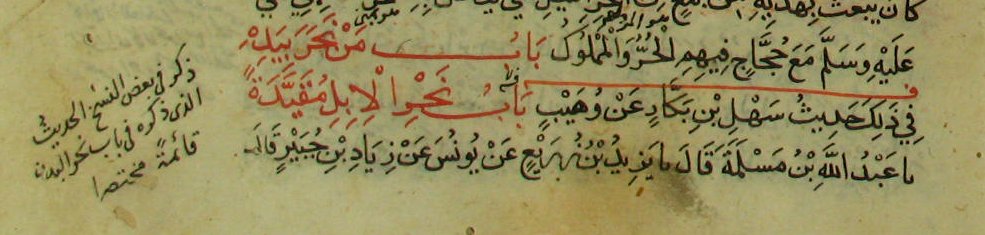 كان يبعث بهديه من
عَلَيْهِ وَسَلَّمَ مَعَ حُجَّاجٍ فِيهِمِ الْحُرُّ وَالْمَمْلُوكُ بَابُ مَنْ نَحَرَ بِيَدِهِ
فِي ذَلِكَ حَدِيثُ سَهْلِ بْنِ بَكَّارٍ عَنْ وُهَيْبٍ بَابُ نَحْرِ الْإِبِلِ مُقَيَّدَةً
نا عَبْدُ اللَّهِ بْنُ مَسْلَمَةَ قَالَ نا يَزِيدُ بْنُ زُرَيْعٍ عَنْ يُونُسَ عَنْ زِيَادِ بْنِ جُبَيْرٍ قَالَ
ذكر في بعض النسخ الحديث
الذى ذكره في باب نحر البدن
قائمة مختصرا